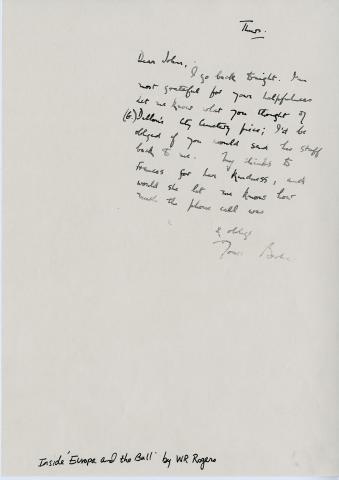 Thurs.
Dear John,
I go back tonight. I'm
most grateful for your helpfulness
Let me know what you thought of
(G.) Dillon's City Cemetery piece; I'd be
obliged if you would send his stuff
back to me. My thanks to
Frances for her kindness, and
would she let me know how
much the phone call was
& oblige
Yours
Inside 'Europa and the Bull' by WR Rogers